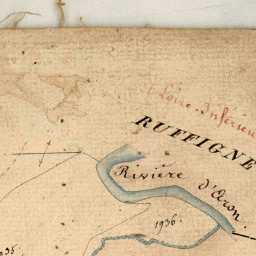 Loire Inférieu
RUFFIGNE
Rivière d'Aron.
1936.